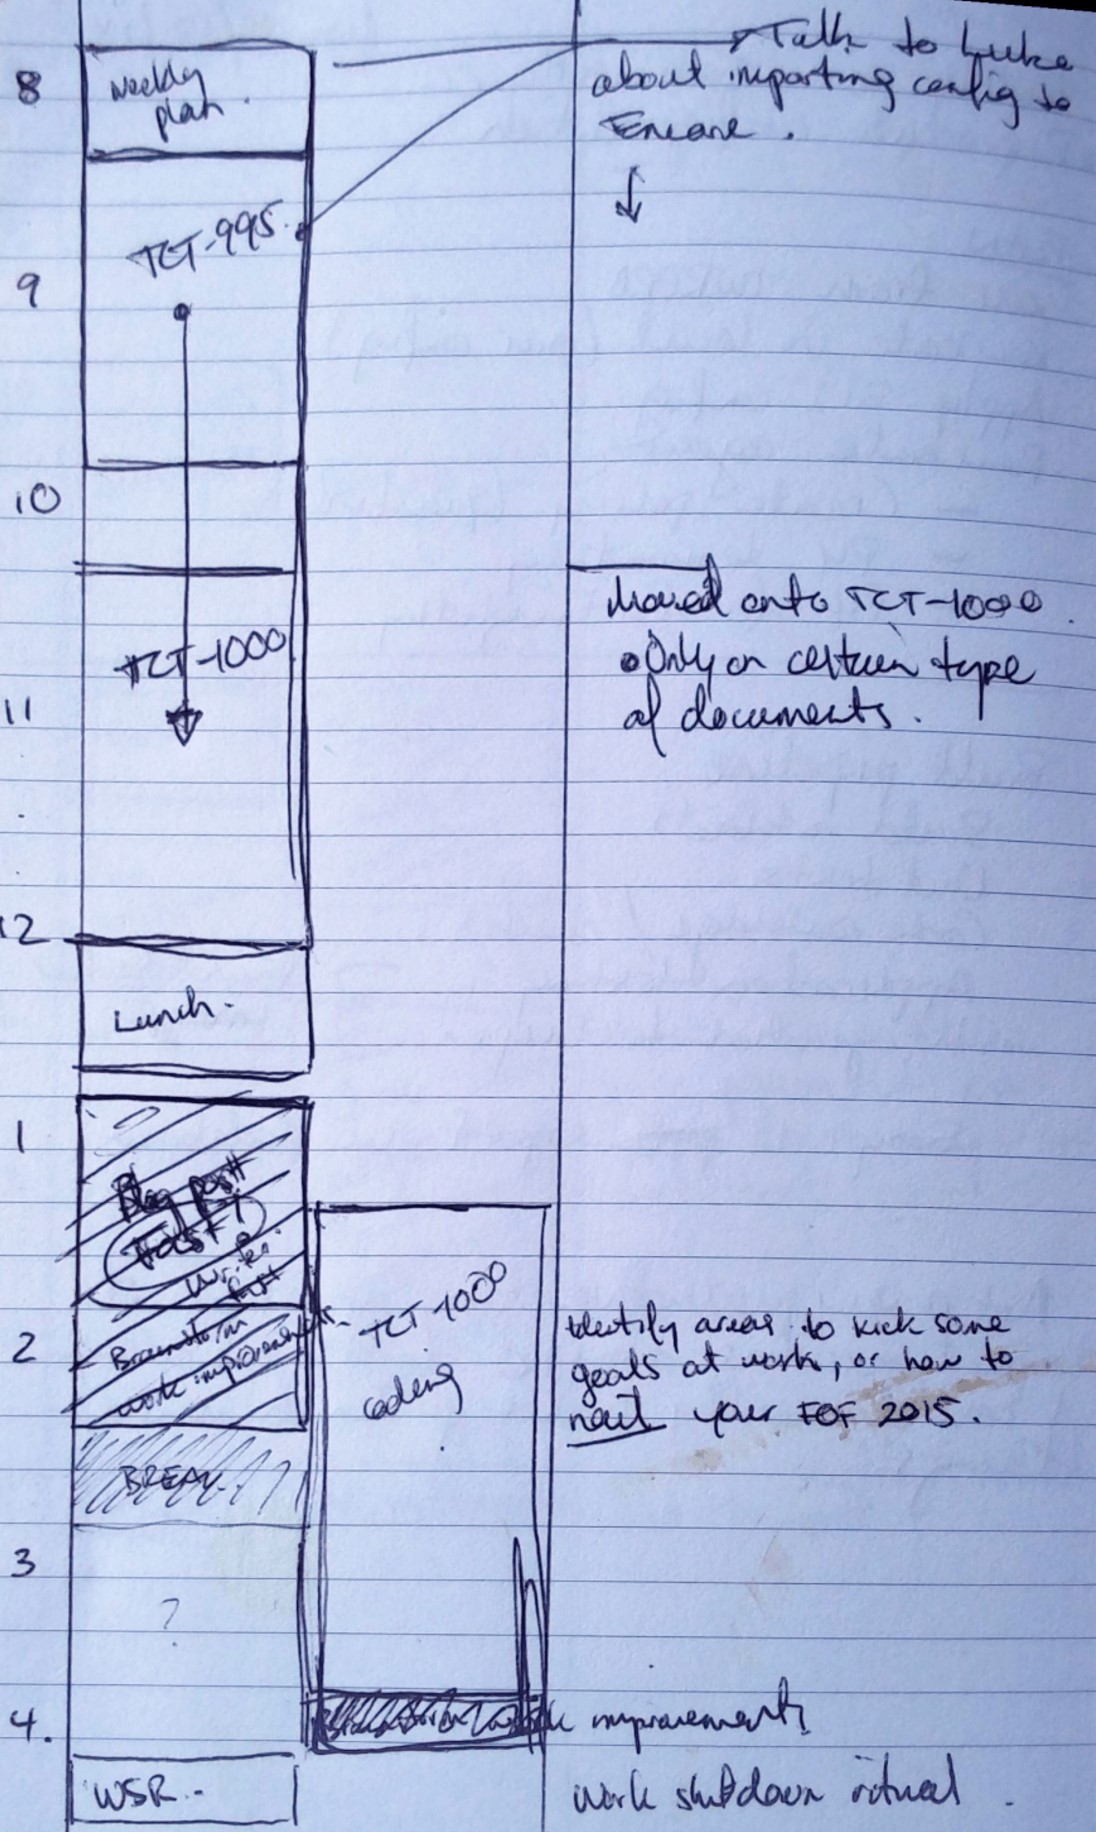 8
Weekly
plan.
Talk to Luke
about importing config to
TCT-995
9
10
Moved onto TCT-1000
• Only on certain type
of documents.
TCT-1000
11
12
Lunch.
1
Blog post
Write
first
2
Brainstorm
work improvements
TCT-1000
coding
Identify areas to kick some
goals at work, or how to
nail your FOF 2015.
BREAK
3
?
4.
improvements
WSR.
Work shutdown ritual.